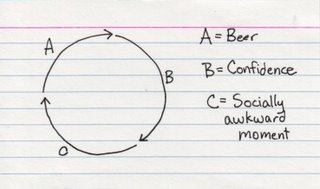 A
B
C
A = Beer
B = Confidence
C = Socially
awkward
moment